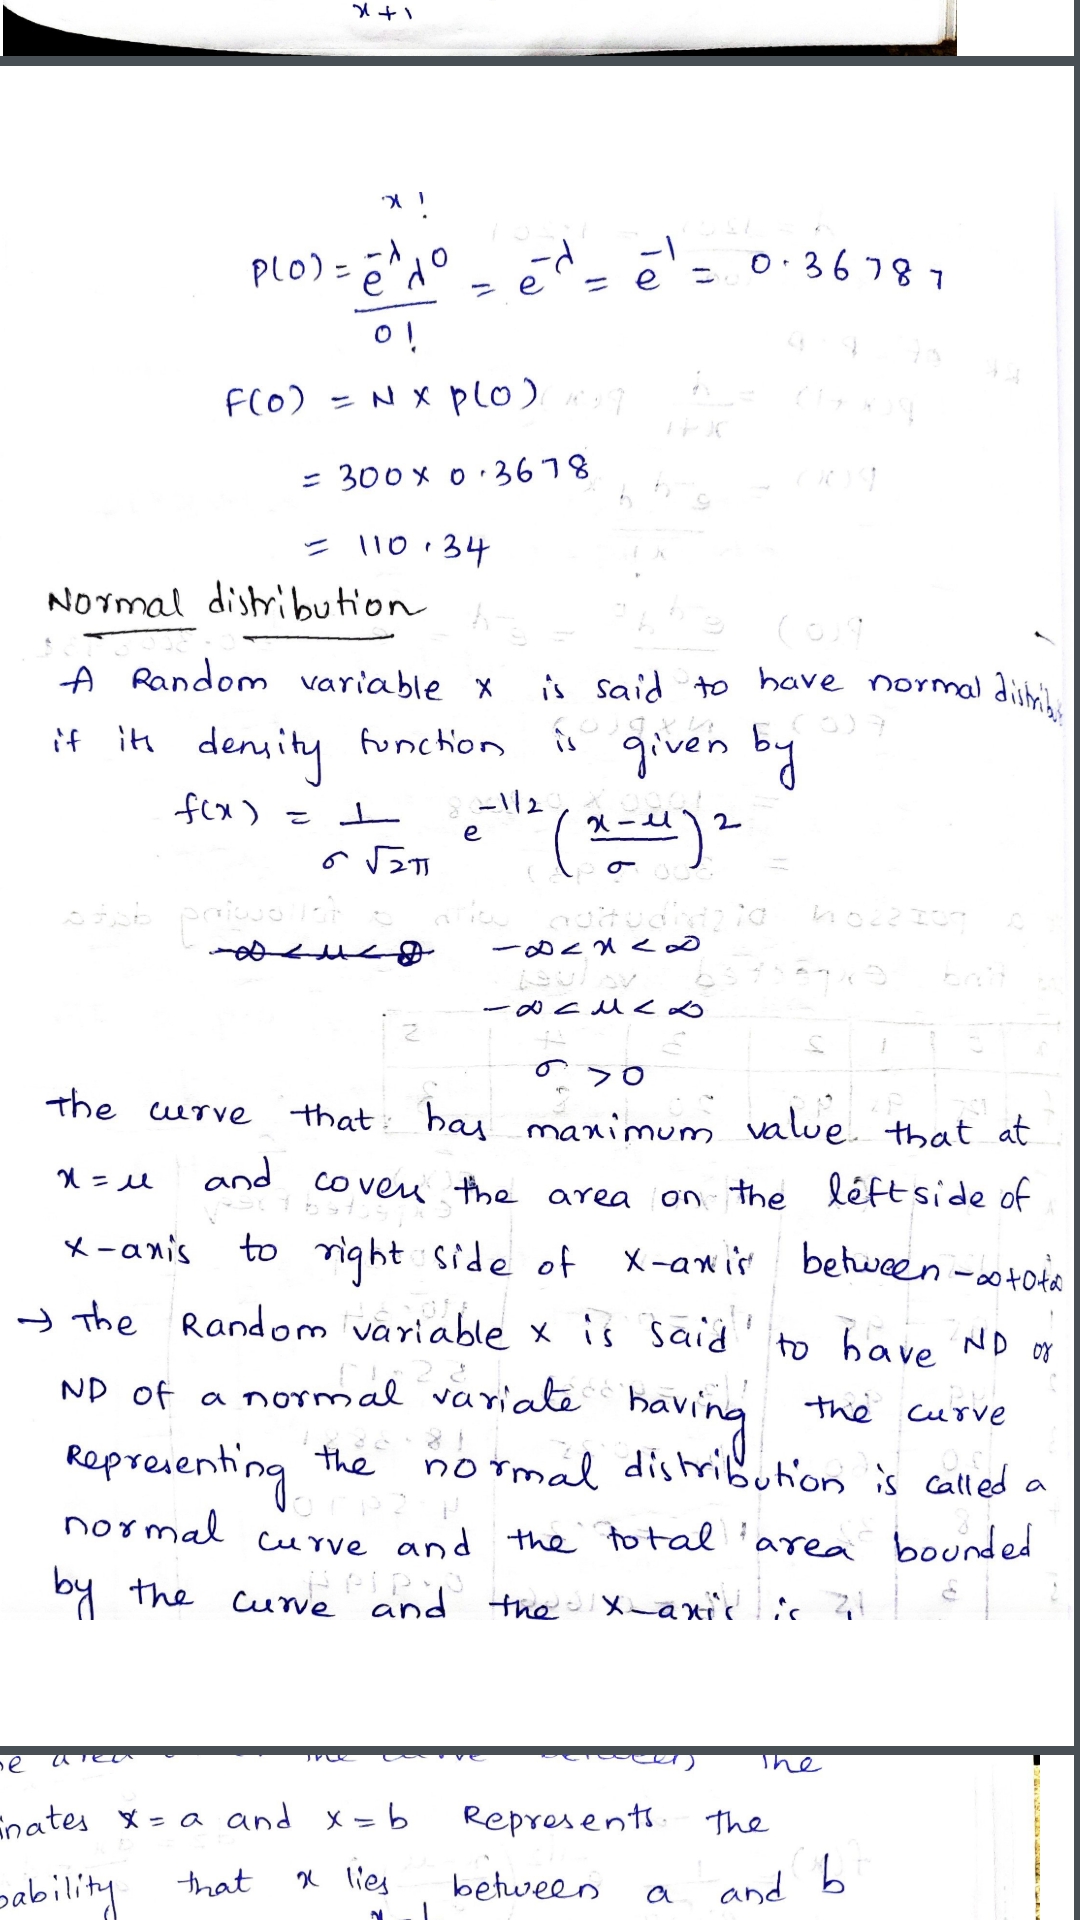 x+1
x!
P(0) = e^-λ λ^0 / 0! = e^-λ = e^-1 = 0.36787
F(0) = N × P(0)
= 300 × 0.3678
= 110.34
Normal distribution
A Random variable x is said to have normal
if its density function is given by
f(x) = 1 / σ √2π e^-1/2 (x-μ / σ)^2
-∞ < x < ∞
-∞ < μ < ∞
σ > 0
The curve that has maximum value that at
x = μ and covers the area on the left side of
x-axis to right side of x-axis between -∞ to +∞
→ The Random variable x is said to have ND or
ND of a normal variate having the curve
Representing the normal distribution is called a
normal curve and the total area bounded
by the curve and the x-axis is 1
area the curve between the
x = a and x = b Represents the
that x lies between a and b